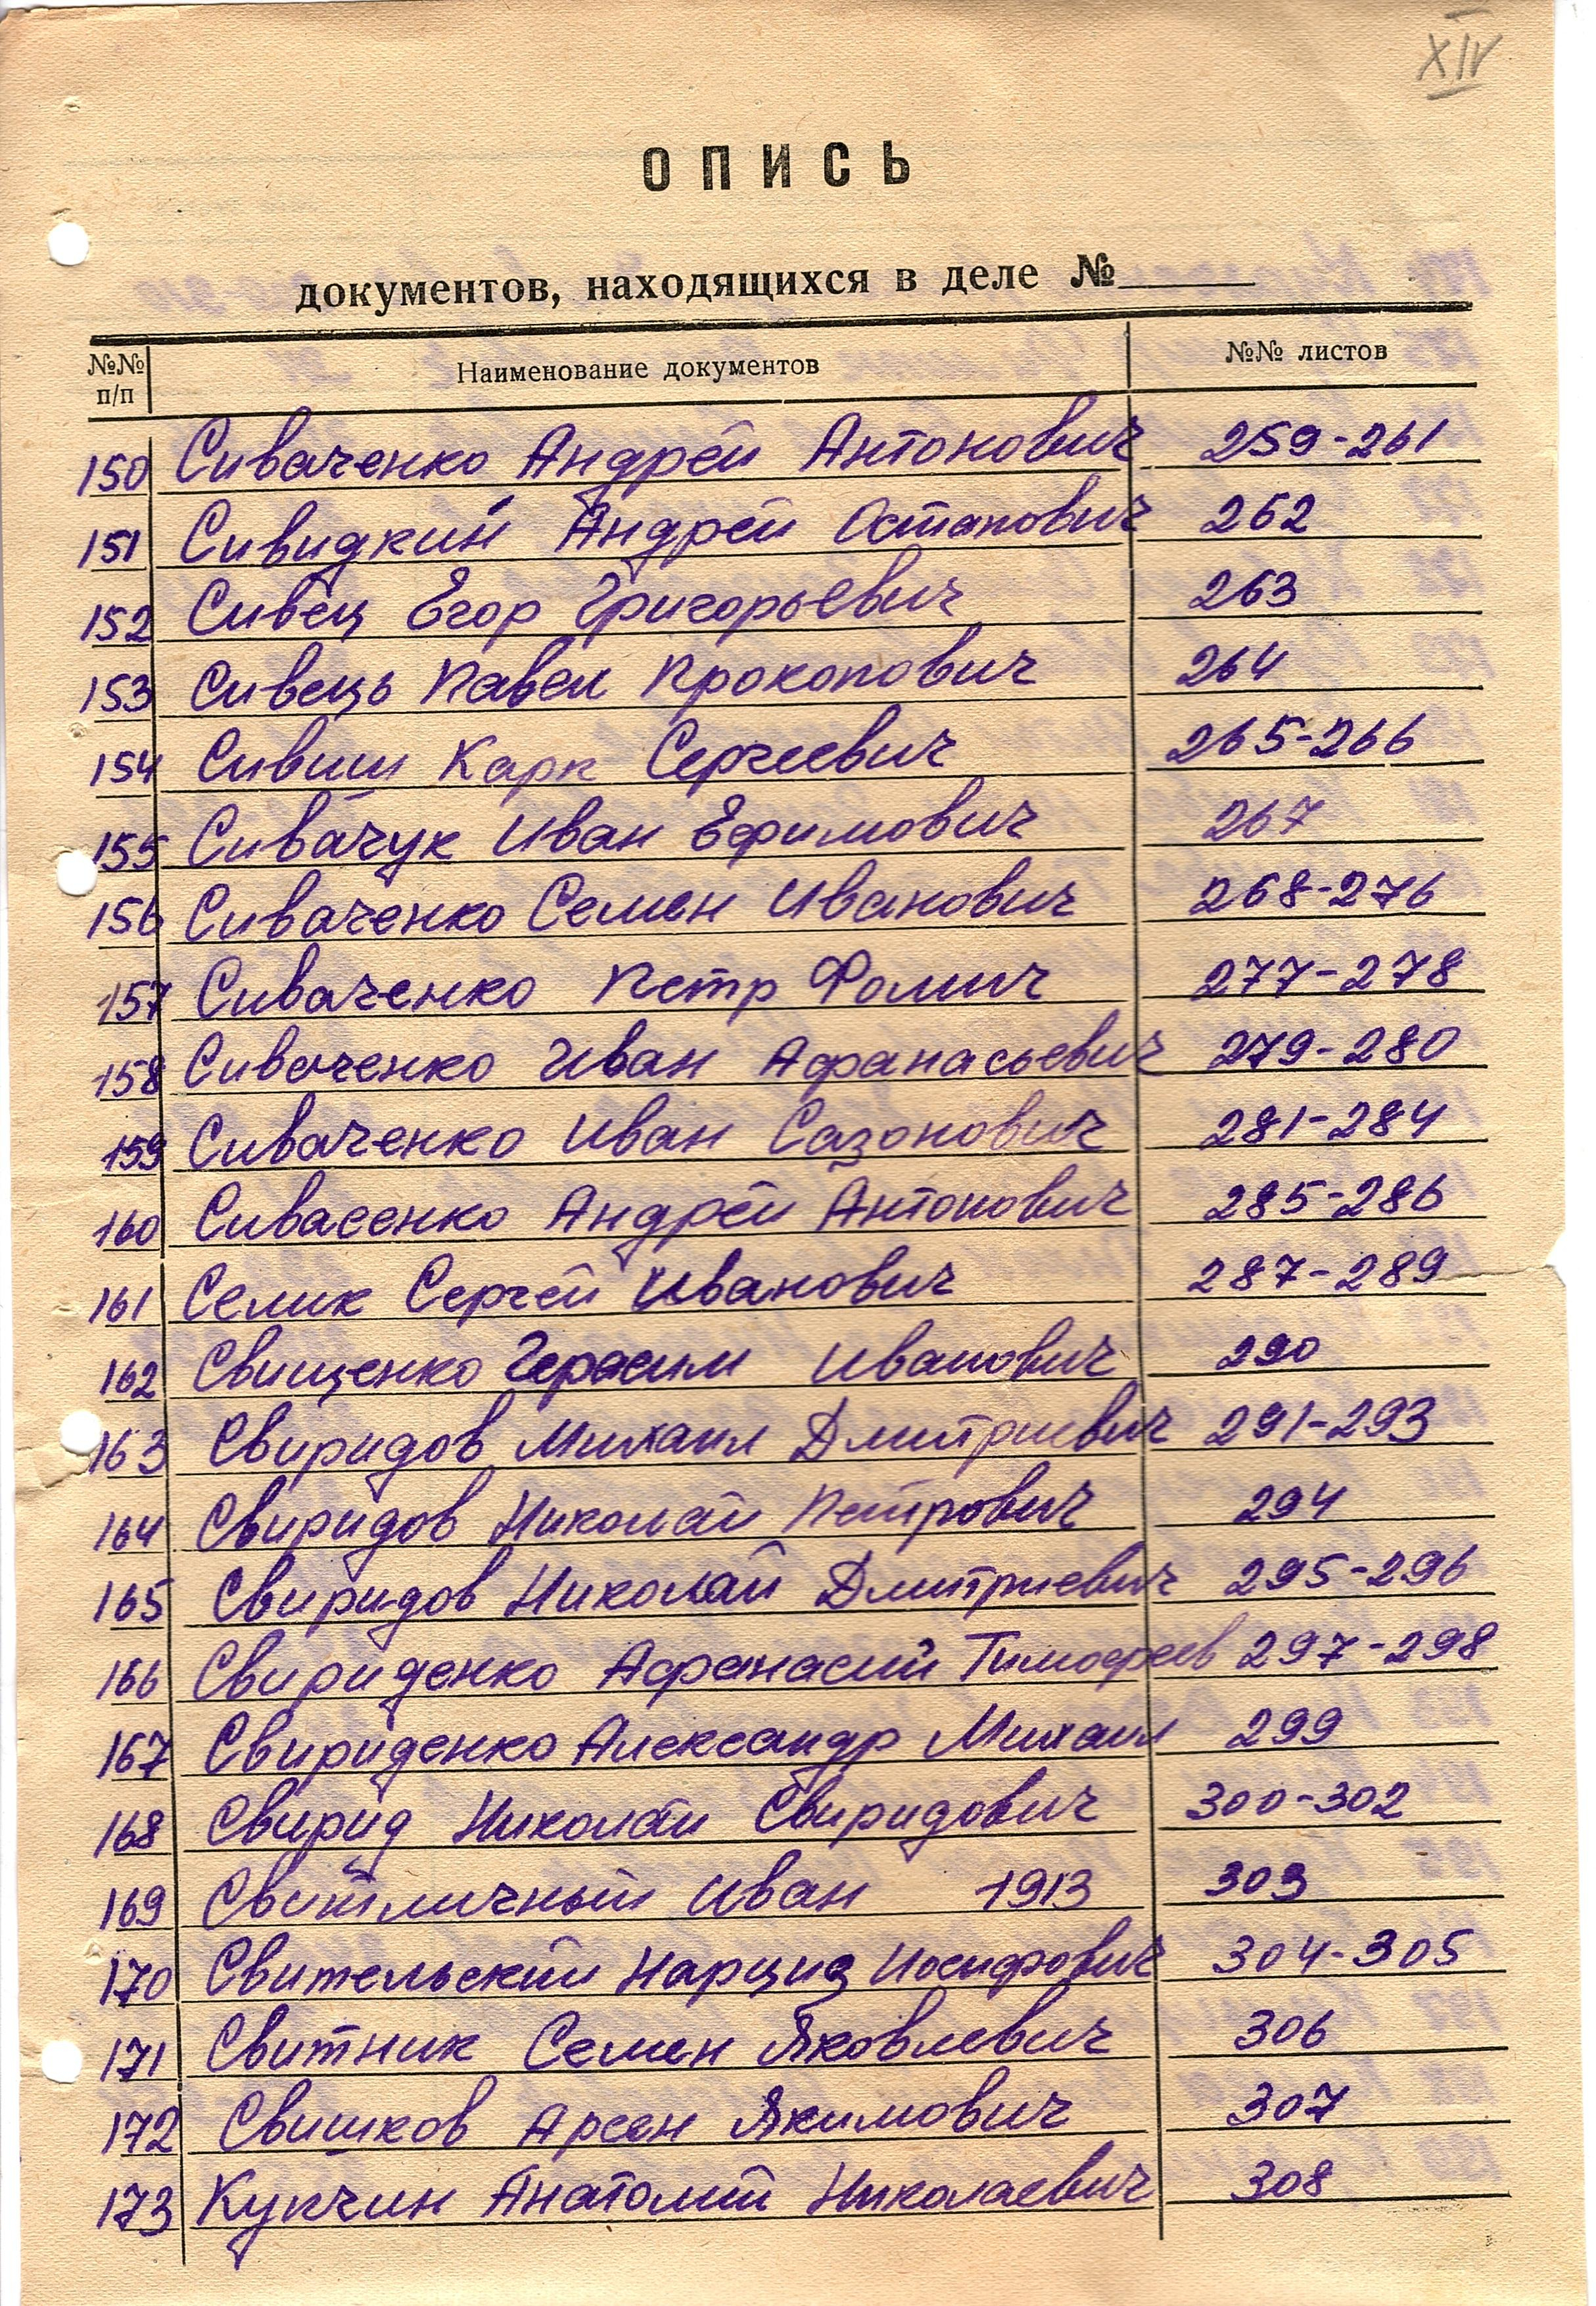 XIV
ОПИСЬ
документов, находящихся в деле №
№№ п/п Наименование документов №№ листов
150 Сиваченко Андрей Антонович 259-261
151 Сивидкий Андрей Остапович 262
152 Сивец Егор Григорьевич 263
153 Сивець Павел Прокопович 264
154 Сивш Карп Сергеевич 265-266
155 Сивачук Иван Ефимович 267
156 Сиваченко Семен Иванович 268-276
157 Сиваченко Петр Фомич 277-278
158 Сиваченко Иван Афанасьевич 279-280
159 Сиваченко Иван Сазонович 281-284
160 Сивасенко Андрей Антонович 285-286
161 Селик Сергей Иванович 287-289
162 Свищенко Герасим Иванович 290
163 Свиридов Михаил Дмитриевич 291-293
164 Свиридов Николай Петрович 294
165 Свиридов Николай Дмитриевич 295-296
166 Свириденко Афанасий Тимофеев 297-298
167 Свириденко Александр Михаил 299
168 Свирид Николай Свиридович 300-302
169 Свитличный Иван 1913 303
170 Свительский Нарциз Иосифович 304-305
171 Свитник Семен Яковлевич 306
172 Свишков Арсен Якимович 307
173 Купчин Анатолий Николаевич 308